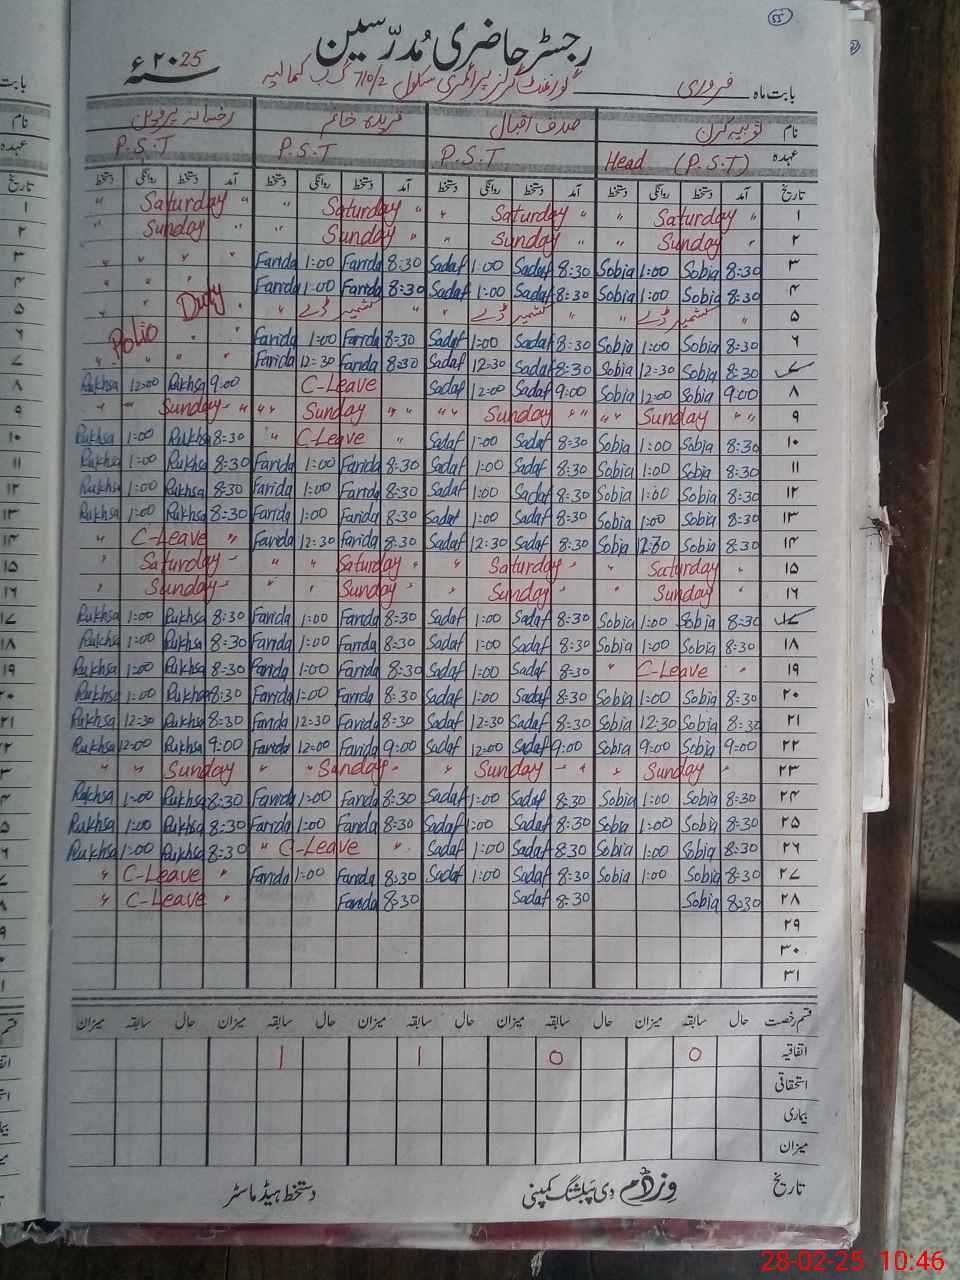 55
رجسٹر حاضری مُدرّسین
سنہ ۲۰25ء
بابت ماہ فروری گورنمنٹ گرلز پرائمری سکول 710/2 گ ب کمالیہ
نام ثوبیہ کرن صدف اقبال فریدہ خانم رخسانہ پروین
عہدہ Head (P.S.T) P.S.T P.S.T P.S.T
تاریخ آمد دستخط روانگی دستخط آمد دستخط روانگی دستخط آمد دستخط روانگی دستخط آمد دستخط روانگی دستخط
۱ " Saturday " " Saturday " " Saturday " " Saturday "
۲ " Sunday " " Sunday " " Sunday " " Sunday "
۳ 8:30 Sobia 1:00 Sobia 8:30 Sadaf 1:00 Sadaf 8:30 Farida 1:00 Farida " " " "
۴ 8:30 Sobia 1:00 Sobia 8:30 Sadaf 1:00 Sadaf 8:30 Farida 1:00 Farida " " "
۵ " کشمیر ڈے " " کشمیر ڈے " " کشمیر ڈے " Duty " "
۶ 8:30 Sobia 1:00 Sobia 8:30 Sadaf 1:00 Sadaf 8:30 Farida 1:00 Farida " Polio
۷ 8:30 Sobia 12:30 Sobia 8:30 Sadaf 12:30 Sadaf 8:30 Farida 12:30 Farida " " " "
۸ 9:00 Sobia 12:00 Sobia 9:00 Sadaf 12:00 Sadaf C-Leave 9:00 Rukhsa 12:00 Rukhsa
۹ " " Sunday " " " " Sunday " " " " Sunday " " " Sunday " "
۱۰ 8:30 Sobia 1:00 Sobia 8:30 Sadaf 1:00 Sadaf " C-Leave " 8:30 Rukhsa 1:00 Rukhsa
۱۱ 8:30 Sobia 1:00 Sobia 8:30 Sadaf 1:00 Sadaf 8:30 Farida 1:00 Farida 8:30 Rukhsa 1:00 Rukhsa
۱۲ 8:30 Sobia 1:00 Sobia 8:30 Sadaf 1:00 Sadaf 8:30 Farida 1:00 Farida 8:30 Rukhsa 1:00 Rukhsa
۱۳ 8:30 Sobia 1:00 Sobia 8:30 Sadaf 1:00 Sadaf 8:30 Farida 1:00 Farida 8:30 Rukhsa 1:00 Rukhsa
۱۴ 8:30 Sobia 12:30 Sobia 8:30 Sadaf 12:30 Sadaf 8:30 Farida 12:30 Farida " C-Leave "
۱۵ " Saturday " " Saturday " " Saturday " " " Saturday "
۱۶ " Sunday " " Sunday " " Sunday " " " Sunday "
۱۷ 8:30 Sobia 1:00 Sobia 8:30 Sadaf 1:00 Sadaf 8:30 Farida 1:00 Farida 8:30 Rukhsa 1:00 Rukhsa
۱۸ 8:30 Sobia 1:00 Sobia 8:30 Sadaf 1:00 Sadaf 8:30 Farida 1:00 Farida 8:30 Rukhsa 1:00 Rukhsa
۱۹ " C-Leave " 8:30 Sadaf 1:00 Sadaf 8:30 Farida 1:00 Farida 8:30 Rukhsa 1:00 Rukhsa
۲۰ 8:30 Sobia 1:00 Sobia 8:30 Sadaf 1:00 Sadaf 8:30 Farida 1:00 Farida 8:30 Rukhsa 1:00 Rukhsa
۲۱ 8:30 Sobia 12:30 Sobia 8:30 Sadaf 12:30 Sadaf 8:30 Farida 12:30 Farida 8:30 Rukhsa 12:30 Rukhsa
۲۲ 9:00 Sobia 9:00 Sobia 9:00 Sadaf 12:00 Sadaf 9:00 Farida 12:00 Farida 9:00 Rukhsa 12:00 Rukhsa
۲۳ " Sunday " " " Sunday " " Sunday " Sunday " "
۲۴ 8:30 Sobia 1:00 Sobia 8:30 Sadaf 1:00 Sadaf 8:30 Farida 1:00 Farida 8:30 Rukhsa 1:00 Rukhsa
۲۵ 8:30 Sobia 1:00 Sobia 8:30 Sadaf 1:00 Sadaf 8:30 Farida 1:00 Farida 8:30 Rukhsa 1:00 Rukhsa
۲۶ 8:30 Sobia 1:00 Sobia 8:30 Sadaf 1:00 Sadaf " C-Leave " 8:30 Rukhsa 1:00 Rukhsa
۲۷ 8:30 Sobia 1:00 Sobia 8:30 Sadaf 1:00 Sadaf 8:30 Farida 1:00 Farida " C-Leave "
۲۸ 8:30 Sobia 8:30 Sadaf 8:30 Farida " C-Leave "
۲۹
۳۰
۳۱
قسم رخصت حال سابقہ میزان حال سابقہ میزان حال سابقہ میزان حال سابقہ میزان
اتفاقیہ 0 0 1 1
استحقاقی
بیماری
میزان
تاریخ وزڈم دی پبلشنگ کمپنی دستخط ہیڈ ماسٹر
28-02-25 10:46